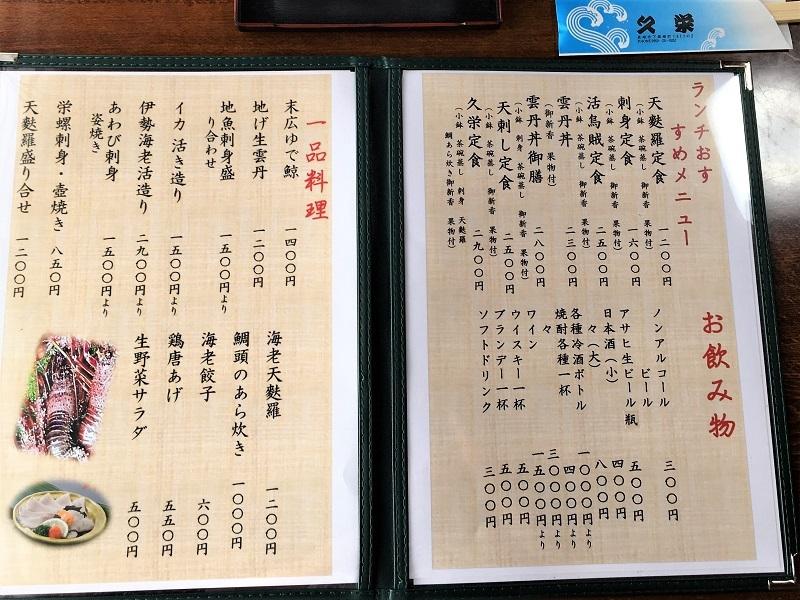 久栄
ランチおす
すめメニュー
天麩羅定食 一二〇〇円
(小鉢 茶碗蒸し 御新香 果物付)
刺身定食 一六〇〇円
(小鉢 茶碗蒸し 御新香 果物付)
活烏賊定食 二五〇〇円
(小鉢 茶碗蒸し 御新香 果物付)
雲丹丼 二三〇〇円
(御新香 果物付)
雲丹丼御膳 二八〇〇円
(小鉢 刺身 茶碗蒸し 御新香 果物付)
天刺し定食 二五〇〇円
(小鉢 茶碗蒸し 御新香 果物付)
久栄定食 二九〇〇円
(小鉢 茶碗蒸し 刺身 天麩羅
鯛あら炊き 御新香 果物付)
お飲み物
ノンアルコール
ビール 三〇〇円
アサヒ生ビール瓶 五〇〇円
日本酒(小) 四〇〇円
々(大) 八〇〇円
各種冷酒ボトル 一〇〇〇円より
焼酎各種一杯 四〇〇円より
々 三〇〇〇円より
ワイン 一五〇〇円より
ウイスキー一杯 五〇〇円
ブランデー一杯 五〇〇円
ソフトドリンク 三〇〇円
一品料理
末広ゆで鯨 一四〇〇円
地げ生雲丹 一二〇〇円
地魚刺身盛
り合わせ 一五〇〇円より
イカ活き造り 一五〇〇円より
伊勢海老活造り 二九〇〇円より
あわび刺身
姿焼き 一五〇〇円より
栄螺刺身・壺焼き 八五〇円
天麩羅盛り合せ 一二〇〇円
海老天麩羅 一二〇〇円
鯛頭のあら炊き 一〇〇〇円
海老餃子 六〇〇円
鶏唐あげ 五五〇円
生野菜サラダ 五〇〇円